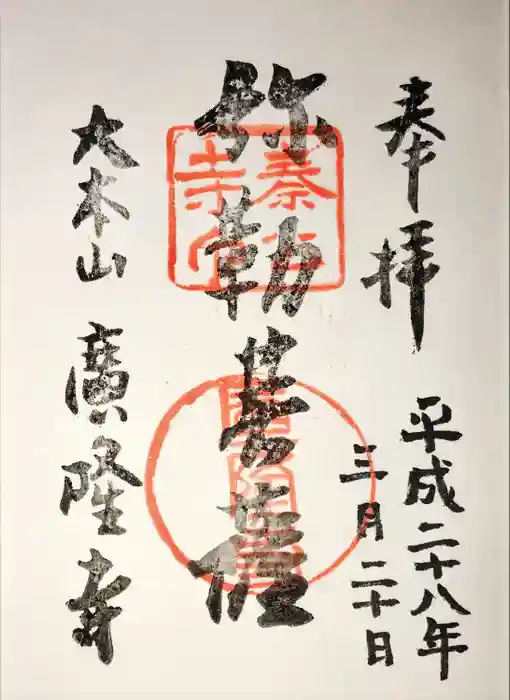 奉拝
平成二十八年
三月二十日
弥勒菩薩
大本山 廣隆寺